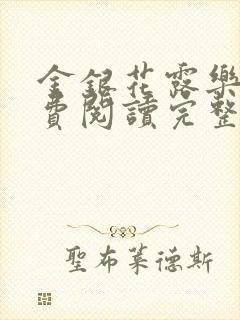 金銀花露樂
費閱讀完整
聖布萊德斯